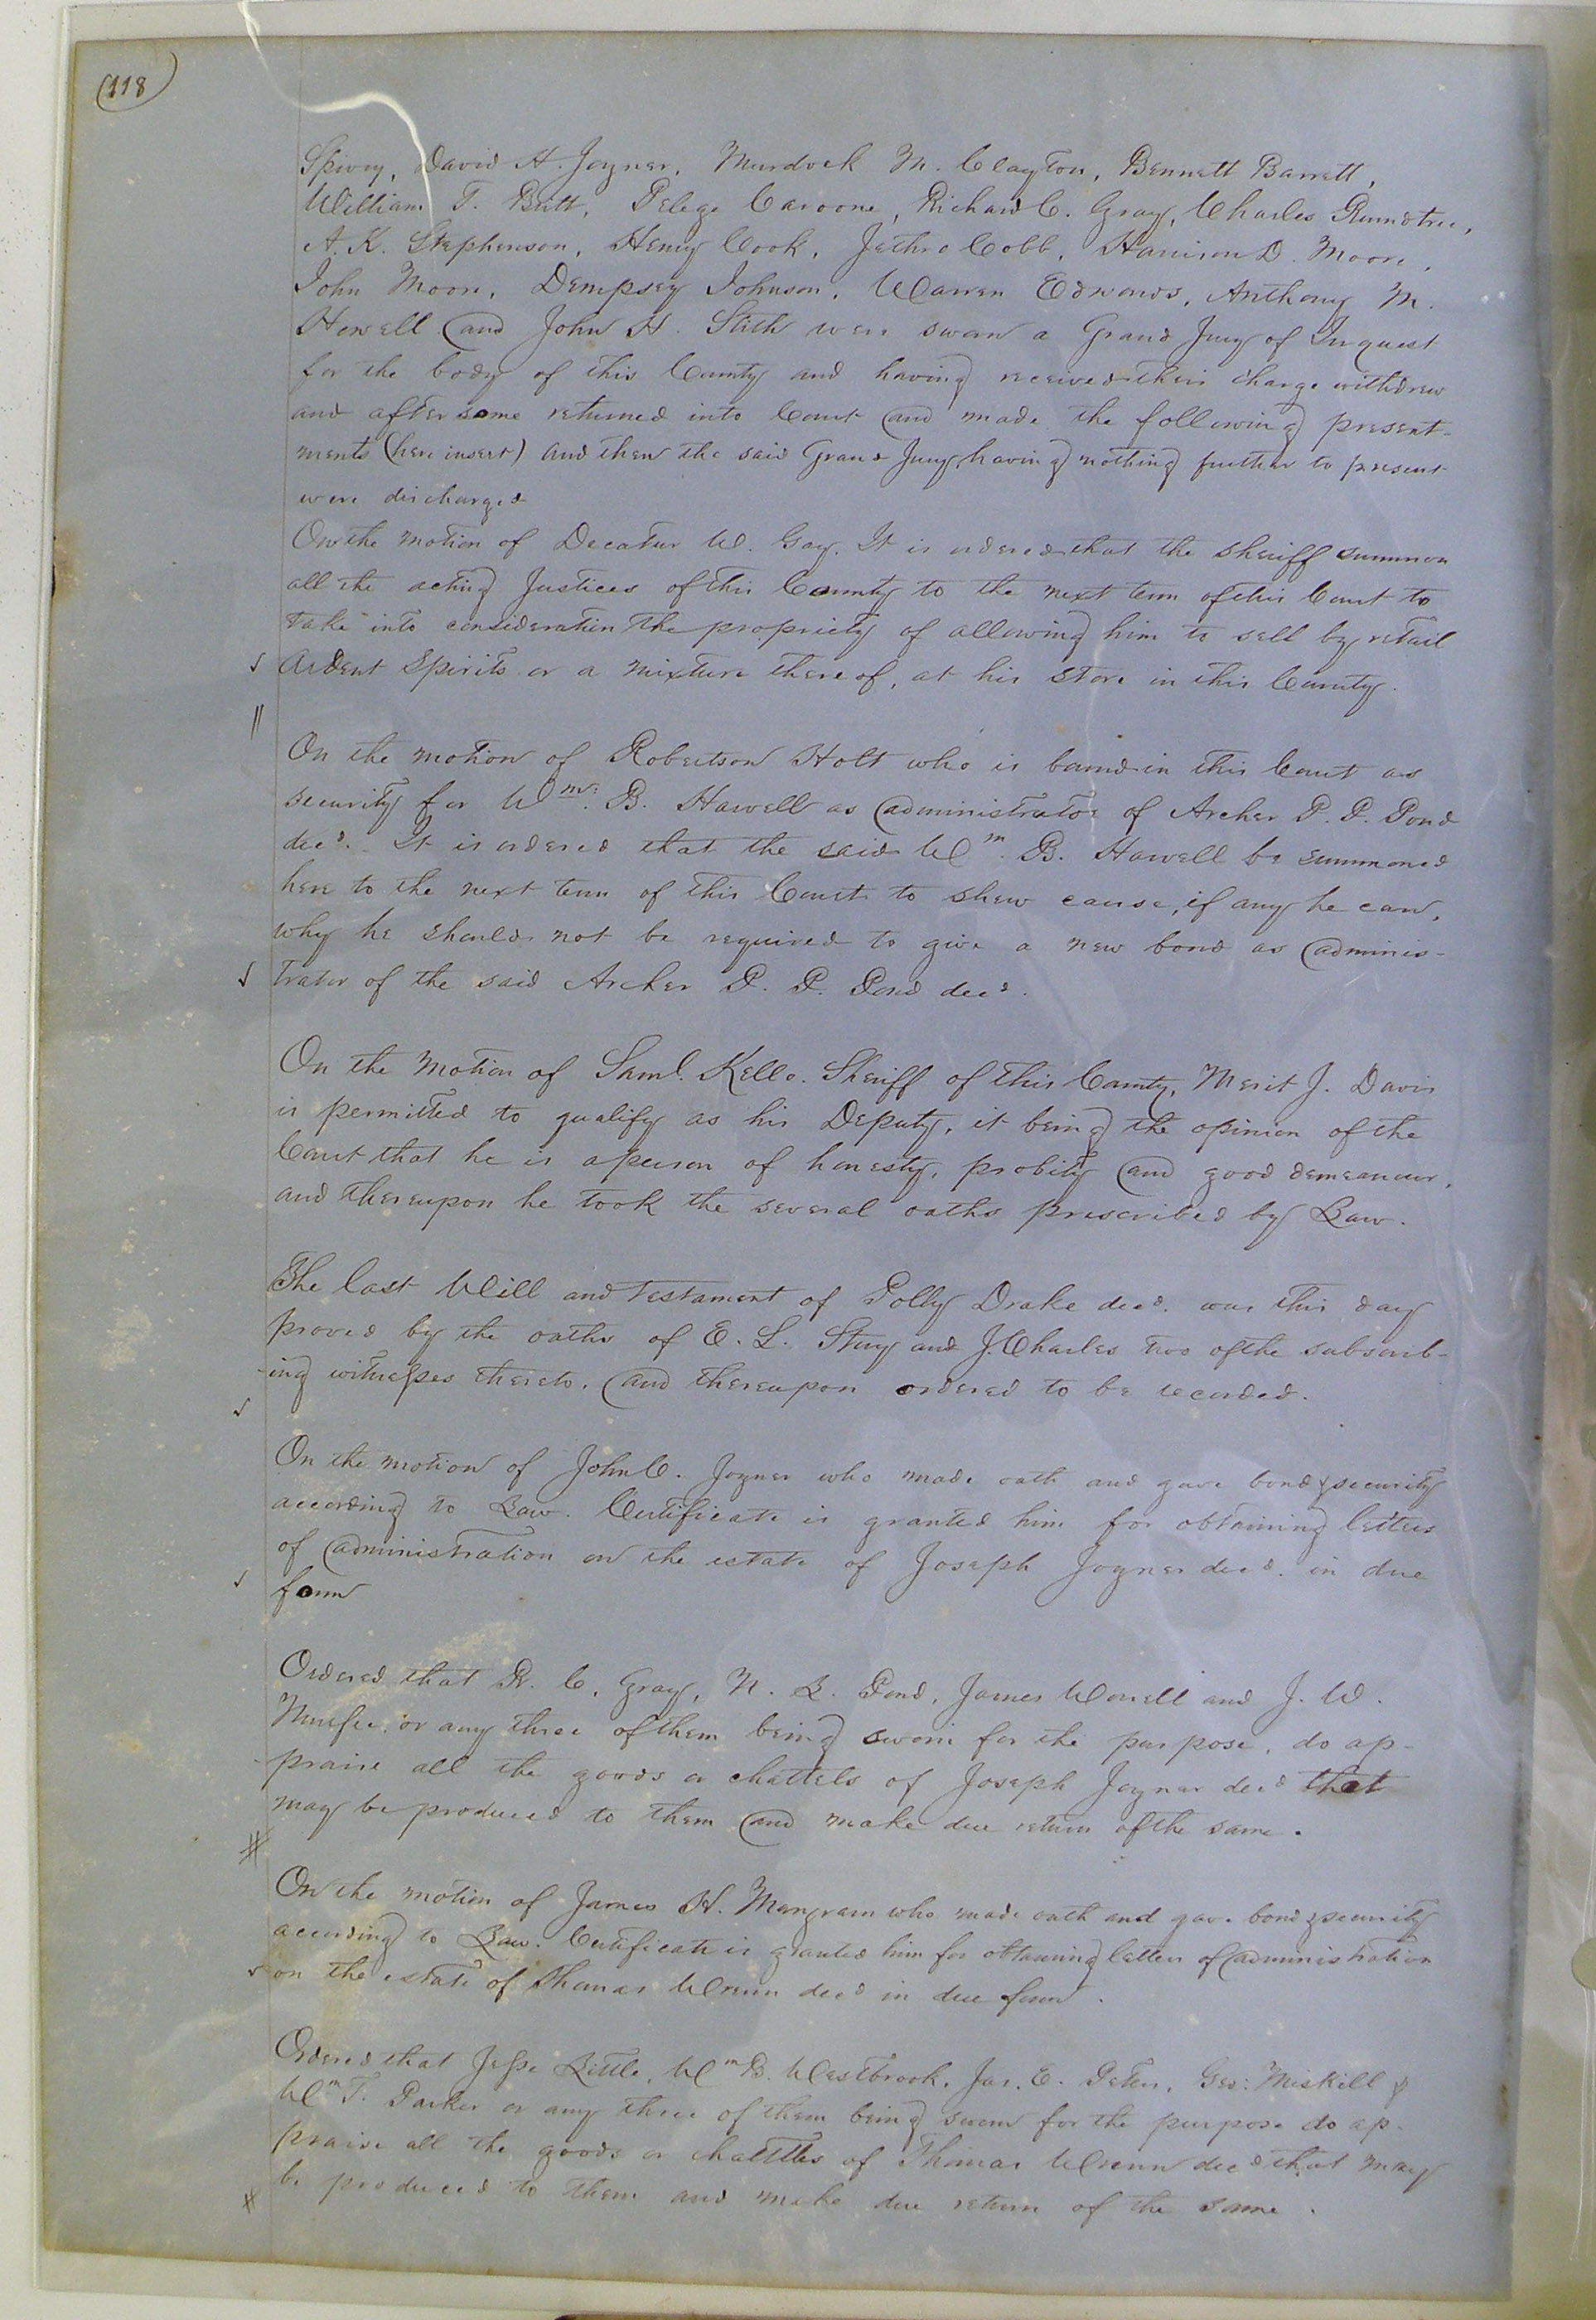 (118)
Spivey, David H. Joyner, Murdock M. Clayton, Bennett Barrett,
William T. Britt, Pelege Caroone, Richard C. Gray, Charles Roundtree,
A. K. Stephenson, Henry Cook, Jethro Cobb, Harrison D. Moore,
John Moore, Dempsey Johnson, Warren Edwards, Anthony M.
Howell and John H. Stith were sworn a Grand Jury of Inquest
for the body of this County and having received their charge withdrew
and after some returned into Court and made the following present-
ments (here insert) and then the said Grand Jury having nothing further to present
were discharged
On the motion of Decatur W. Gay. It is ordered that the sheriff summon
all the acting Justices of this County to the next term of this Court to
take into consideration the propriety of allowing him to sell by retail
√ Ardent Spirits or a mixture thereof, at his store in this County.
//
On the motion of Robertson Holt who is bound in this Court as
security for Wm. B. Howell as administrator of Archer P. P. Pond
decd. It is ordered that the said Wm. B. Howell be summoned
here to the next term of this Court to shew cause, if any he can,
why he should not be required to give a new bond as adminis-
√ trator of the said Archer P. P. Pond decd.
On the motion of Saml. Kello. Sheriff of this County, Merit J. Davis
is permitted to qualify as his Deputy, it being the opinion of the
Court that he is a person of honesty, probity and good demeanour,
and thereupon he took the several oaths prescribed by Law.
The last Will and testament of Polly Drake decd. was this day
proved by the oaths of E. L. and J. Charles two of the subscrib-
-ing witnesses thereto, and thereupon ordered to be recorded.
√
On the motion of John C. Joyner who made oath and gave bond & security
according to Law. Certificate is granted him for obtaining letters
of administration on the estate of Joseph Joyner decd. in due
√ form
Ordered that R. C. Gray, N. L. Pond, James Worrell and J. W.
Murfee, or any three of them being sworn for the purpose, do ap-
-praise all the goods or chattels of Joseph Joyner decd that
may be produced to them and make due return of the same.
#
On the motion of James H. Mangram who made oath and gave bond & security
according to Law. Certificate is granted him for obtaining letters of administration
√ on the estate of Thomas Wrenn decd in due form.
Ordered that Jesse Little, Wm B. Westbrook, Jas. E. Peters, Geo: Miskill &
Wm T. Parker or any three of them being sworn for the purpose do ap-
praise all the goods or chattles of Thomas Wrenn decd that may
# be produced to them and make due return of the same.